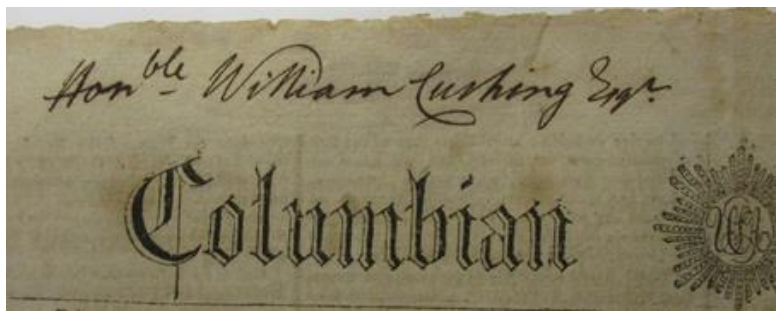 Honble William Cushing Esqr.
Columbian